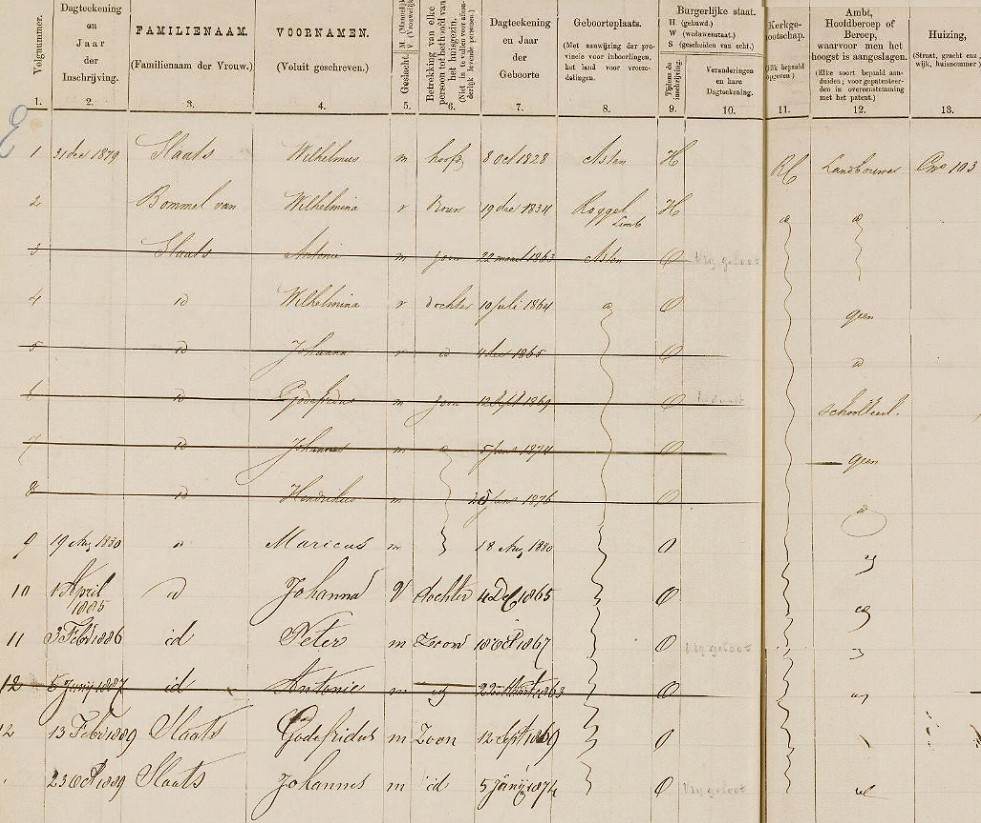 Volgnummer.
Dagteekening en Jaar der Inschrijving.
FAMILIENAAM.
(Familienaam der Vrouw.)
VOORNAMEN.
(Voluit geschreven.)
Geslacht. M (Mannelijk) V (Vrouwelijk)
Betrekking van elken persoon tot het hoofd van het huisgezin.
Dagteekening en Jaar der Geboorte
Geboorteplaats.
(Met aanwijzing der provincie voor inboorlingen, het land voor vreemdelingen.
Burgerlijke staat.
H (gehuwd.)
W (weduwenstaat.)
S (gescheiden van echt.)
Tijdens de inschrijving.
Veranderingen en hare Dagteekening.
Ambt, Hoofdberoep of Beroep, waarvoor men het hoogst is aangeslagen.
(Elke soort bepaald aanduiden; voor gepatenteerden in overeenstemming met het patent.)
Huizing,
1. 2. 3. 4. 5. 6. 7. 8. 9. 10. 11. 12. 13.
1 31 dec 1879 Slaats Wilhelmus m hoofd 8 Oct 1828 Asten H RC Landbouwer C no 103
2 Bommel van Wilhelmina v Vrouw 19 dec 1834 Roggel Limb H
3 Slaats Antonie m zoon 22 maart 1863 Asten O Vrij geloot
4 id Wilhelmina v dochter 10 Juli 1864 O geen
5 id Johanna v id 4 dec 1865 O id
6 id Godefridus m zoon 12 Sept 1869 O
7 id Johannes m 5 Juni 1874 O geen
8 id Hendrikus m 1876 O
9 19 Aug 1880 Maricus m 18 Aug 1880 O
10 1 April 1885 id Johanna V dochter 4 Dec 1865 O
11 3 Febr 1886 id Peter m Zoon 18 Oct 1867 O Vrij geloot
12 6 Junij 1887 id Antonie m id 22 Maart 1863 O
12 13 Febr 1889 Slaats Godefridus m Zoon 12 Sept 1869 O
23 Oct 1889 Slaats Johannes m id 5 Junij 1874 O Vrij geloot